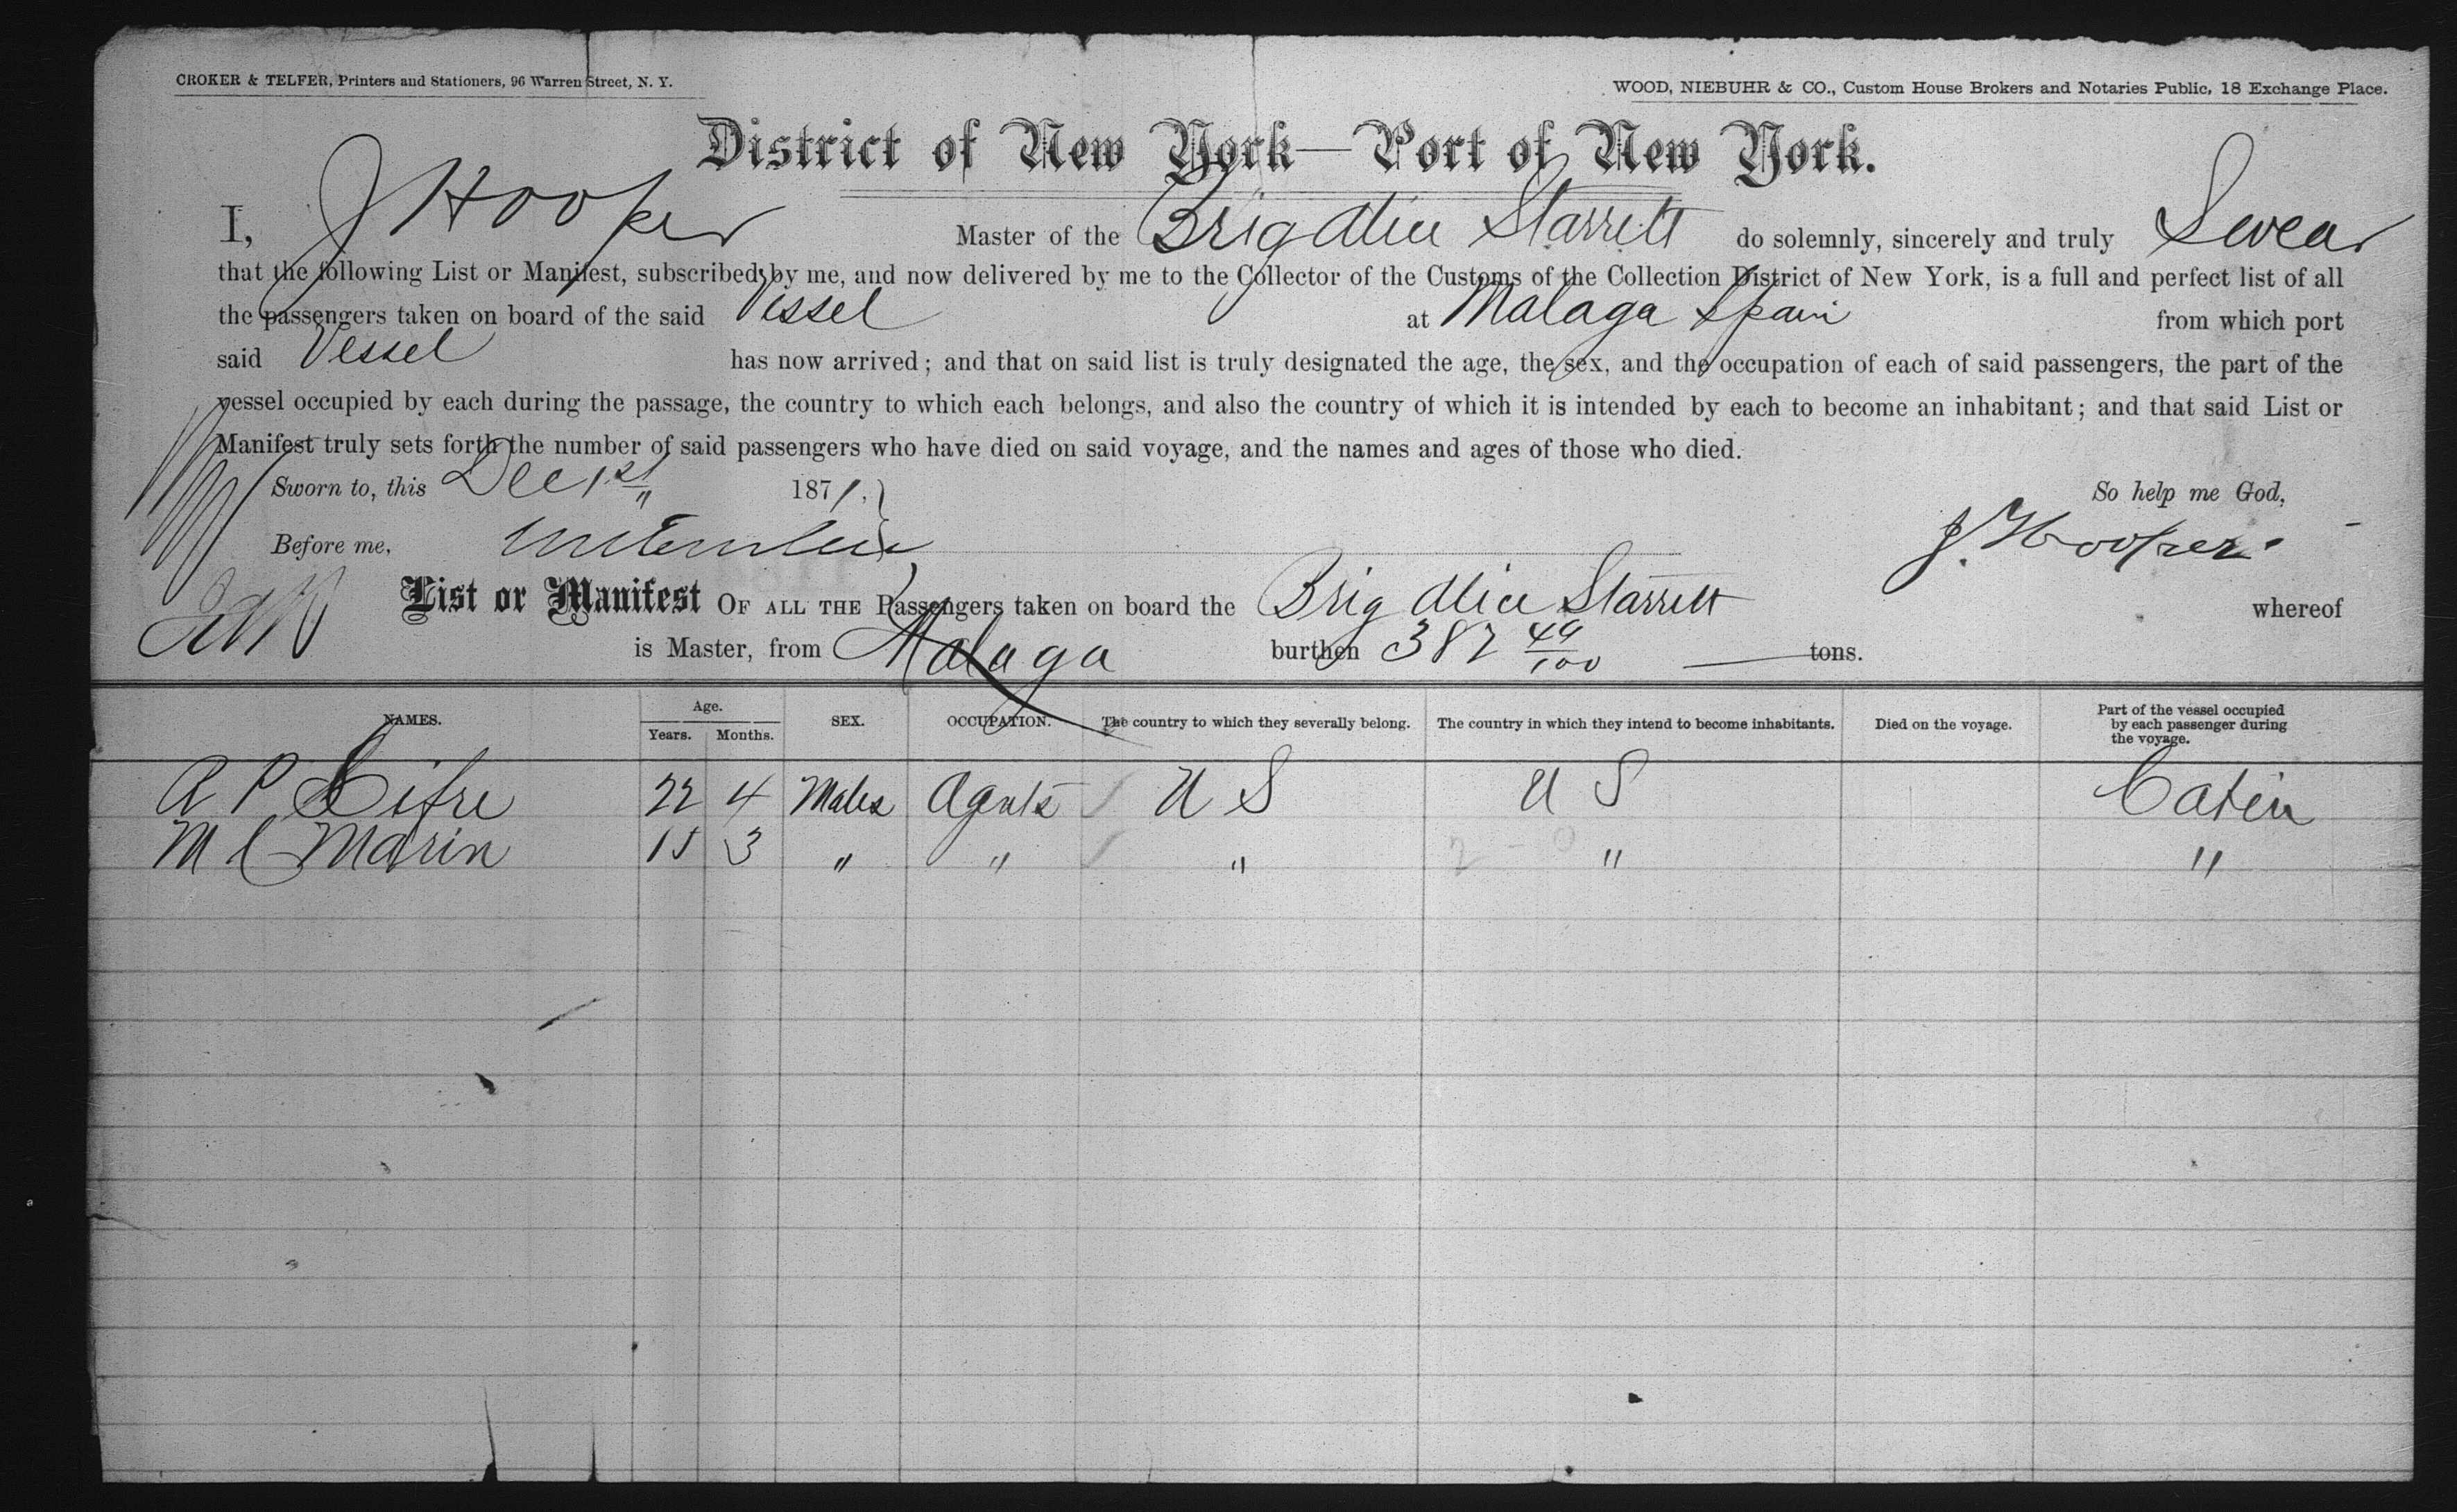 CROKER & TELFER, Printers and Stationers, 96 Warren Street, N. Y.
WOOD, NIEBUHR & CO., Custom House Brokers and Notaries Public, 18 Exchange Place.
District of New York—Port of New York.
I, J Hooper Master of the Brig Alice Starrett do solemnly, sincerely and truly Swear
that the following List or Manifest, subscribed by me, and now delivered by me to the Collector of the Customs of the Collection District of New York, is a full and perfect list of all
the passengers taken on board of the said Vessel at Malaga Spain from which port
said Vessel has now arrived; and that on said list is truly designated the age, the sex, and the occupation of each of said passengers, the part of the
vessel occupied by each during the passage, the country to which each belongs, and also the country of which it is intended by each to become an inhabitant; and that said List or
Manifest truly sets forth the number of said passengers who have died on said voyage, and the names and ages of those who died.
Sworn to, this Dec 1st 1871. So help me God,
Before me, J. Hooper
List or Manifest OF ALL THE Passengers taken on board the Brig Alice Starrett whereof
is Master, from Malaga burthen 387 49/100 tons.
NAMES. Age. Years. Months. SEX. OCCUPATION. The country to which they severally belong. The country in which they intend to become inhabitants. Died on the voyage. Part of the vessel occupied by each passenger during the voyage.
A P 22 4 Males Agents U S U S Cabin
M C Marin 15 3 " " " " "